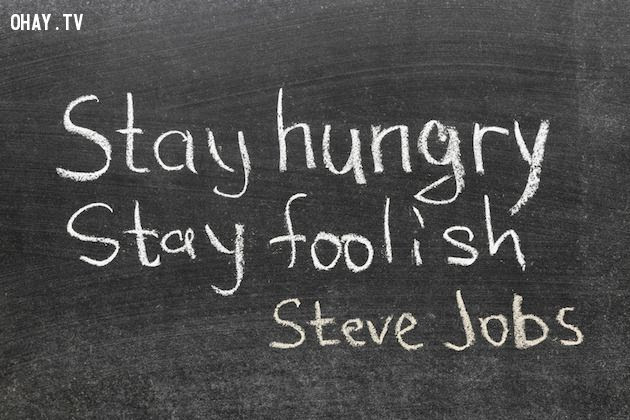 OHAY.TV
Stay hungry
Stay foolish
Steve Jobs